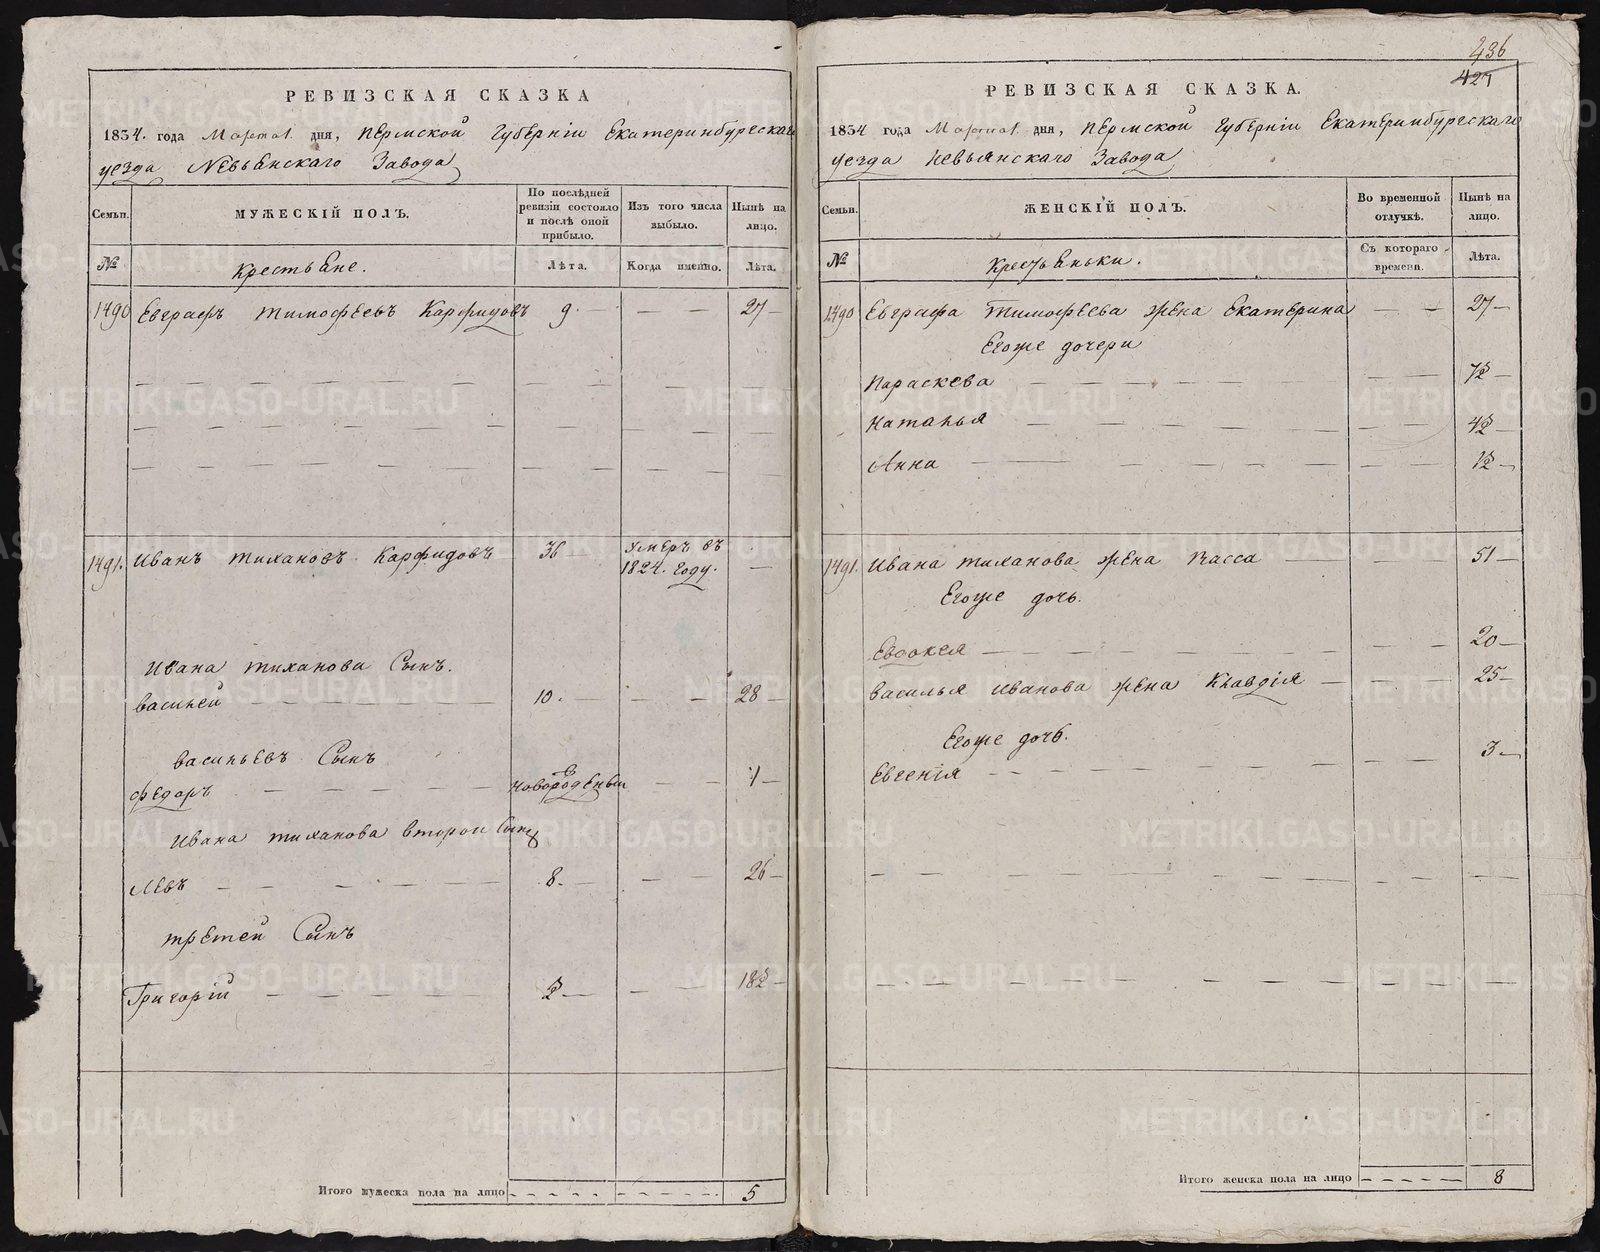 РЕВИЗСКАЯ СКАЗКА
1834. года Марта 1. дня, Пермской Губернiи Екатеринбурскаго
уезда Невьенскаго Завода
Семьи.
МУЖЕСКIЙ ПОЛЪ.
По послѣдней ревизiи состояло и послѣ оной прибыло.
Изъ того числа выбыло.
Нынѣ на лицо.
№
Крестьене.
Лѣта.
Когда именно.
Лѣта.
1490 Евграфъ тимофеевъ Карфидовъ 9. — — — 27 —
1491. Иванъ тихановъ Карфидовъ 36 — умеръ въ 1824. году. —
Ивана тиханова Сынъ.
василей — 10. — — 28 —
васильевъ Сынъ
федоръ — новорожденый — — 1 —
Ивана тиханова второй Сынъ
Левъ — 8. — — — 26 —
третей Сынъ
Григорiй — ½ — — — 18½ —
Итого мужеска пола на лицо 5
436
427
РЕВИЗСКАЯ СКАЗКА.
1834 года Марта 1. дня, Пермской Губернiи Екатеринбурскаго
уезда Невьянскаго Завода
Семьи.
ЖЕНСКIЙ ПОЛЪ.
Во временной отлучкѣ.
Нынѣ на лицо.
№
Крестьеньки.
Съ котораго времени.
Лѣта.
1490 Евграфа Тимофеева жена Екатерина — — 27 —
Егоже дочери
Параскева — 7½ —
Наталья — 4½ —
Анна — 1½ —
1491. Ивана тиханова жена Васса — 51 —
Егоже дочь.
Евдокея — 20 —
Василья Иванова жена Клавдiя — 25 —
Егоже дочь.
Евгенiя — 3 —
Итого женска пола на лицо 8
METRIKI.GASO-URAL.RU